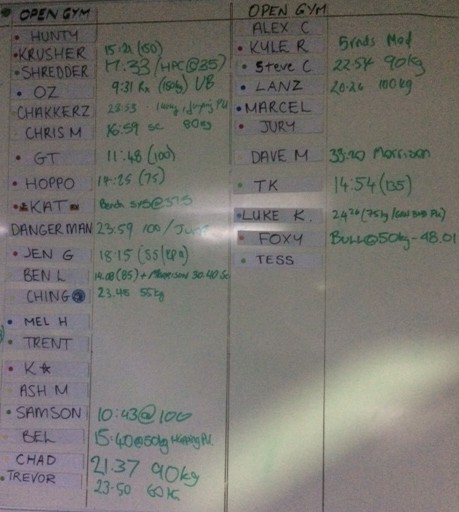 OPEN GYM
HUNTY
KRUSHER 15:21 (150)
SHREDDER 17:33 / HPC@85
OZ 9:31 Rx UB
CHAKKERZ 23:53
CHRIS M 16:59 sc 80kg
GT 11:48 (100)
HOPPO 14:25 (75)
KAT Bench 5x5@37.5
DANGERMAN 23:59 100 / Jump
JEN G 18:15
BEN L 14:08 (85) + Morrison 30.40 Sc
CHING 23.45 55kg
MEL H
TRENT
K
ASH M
SAMSON 10:43@100
BEL 15:40@50kg
CHAD 21.37 90kg
TREVOR 23.50 60kg
OPEN GYM
ALEX C
KYLE R 5rnds Mod
Steve C 22:54 90kg
LANZ 20:26 100kg
MARCEL
JURY
DAVE M Morrison
TK 14:54 (135)
LUKE K.
FOXY BULL@50kg - 48.01
TESS